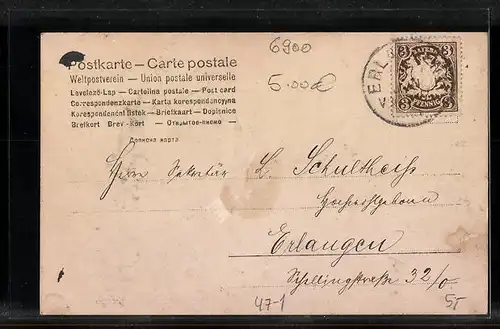 6900
5.00
Postkarte – Carte postale
Weltpostverein – Union postale universelle
Levelező-Lap – Cartolina postale – Post card
Correspondenzkarte – Karta korespondencyjna
Korespondenční lístek – Briefkaart – Dopisnice
Brefkort – Brev-Kort – Открытое письмо –
Дописна карта
BAYERN
3 3
3 PFENNIG 3
ERL
Herrn Sekretär L. Schultheiß
Hochwohlgeboren
Erlangen
Schillingstraße 32/0
47-1